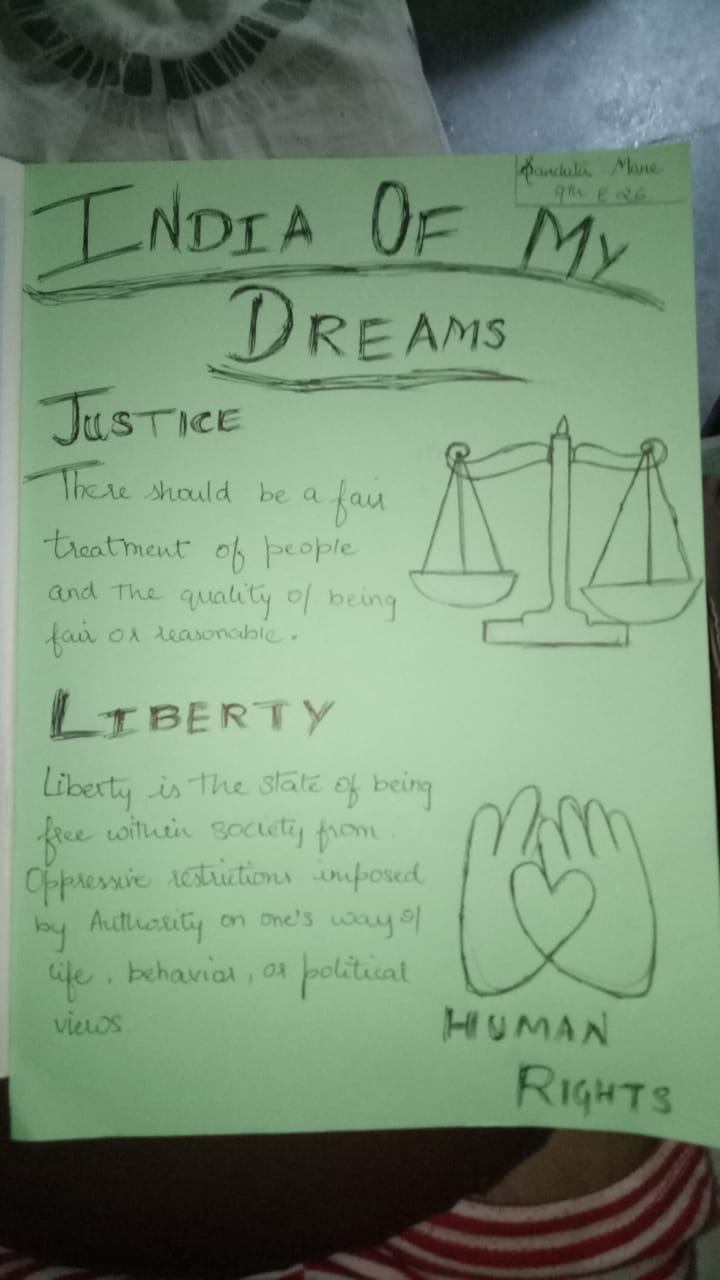 Sanchita Mane
9th E 26
INDIA OF MY
DREAMS
JUSTICE
There should be a fair
treatment of people
and The quality of being
fair or reasonable.
LIBERTY
Liberty is The state of being
free within society from
Oppressive restrictions imposed
by Authority on one's way of
life, behavior, or political
views
HUMAN
RIGHTS